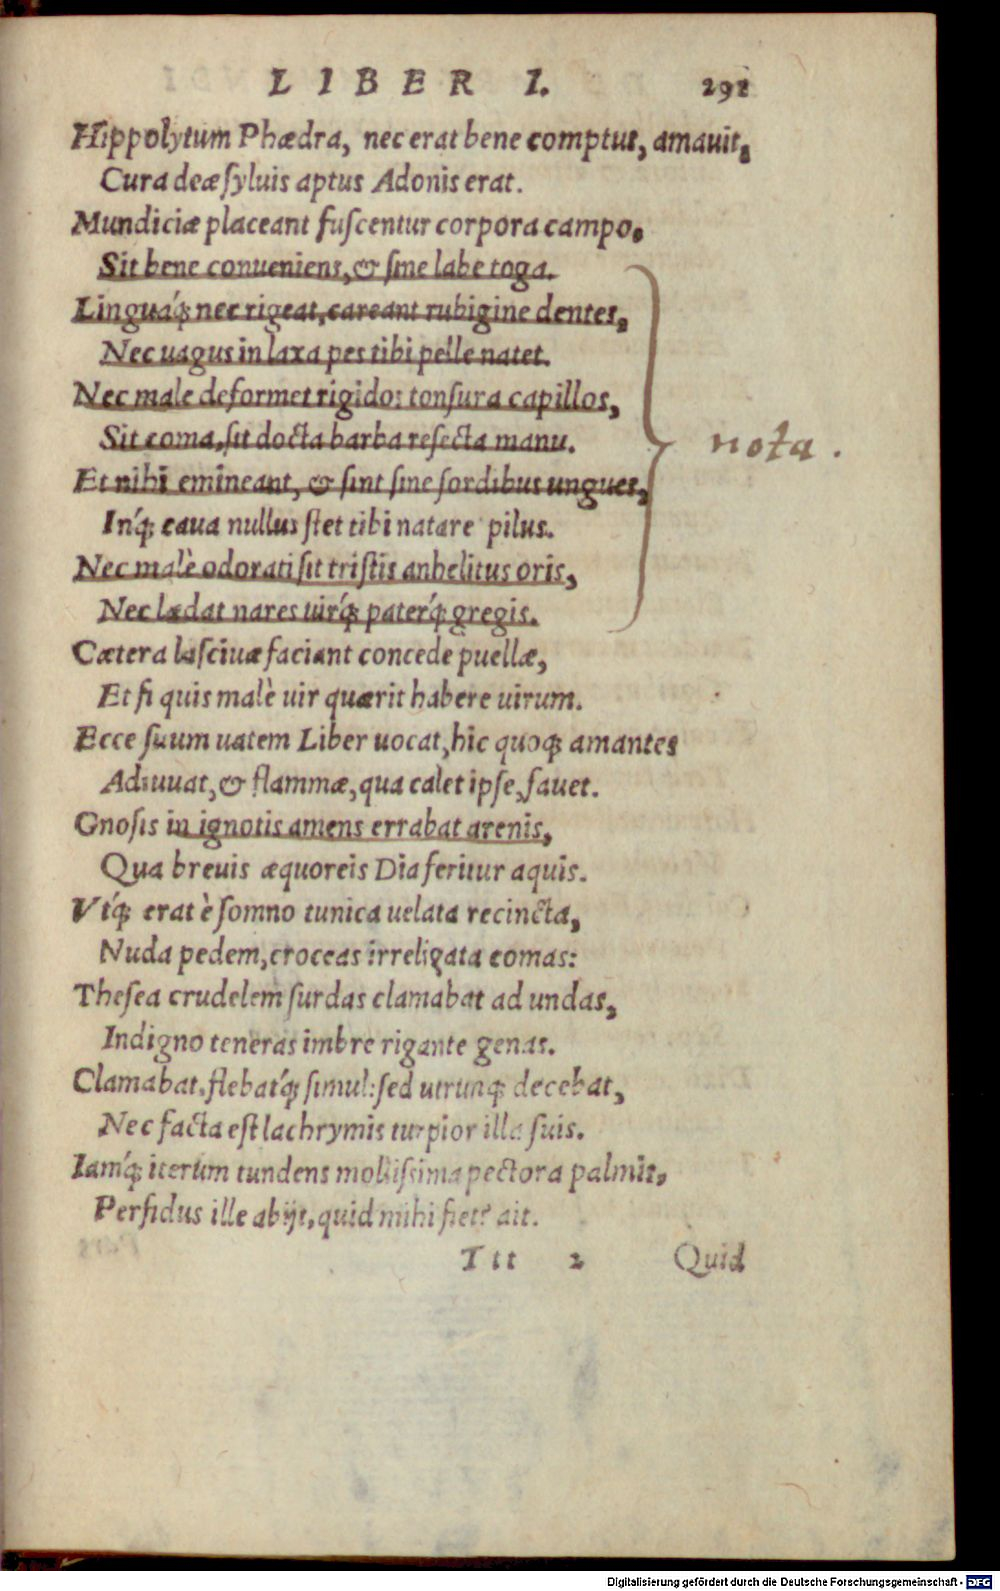 LIBER I. 292
Hippolytum Phædra, nec erat bene comptus, amauit,
Cura deæ syluis aptus Adonis erat.
Mundiciæ placeant fuscentur corpora campo,
Sit bene conueniens, & sine labe toga.
Linguaq́; nec rigeat, careant rubigine dentes,
Nec uagus in laxa pes tibi pelle natet.
Nec male deformet rigidos tonsura capillos,
Sit coma, sit docta barba resecta manu.
Et nihi emineant, & sint sine sordibus ungues,
Inq́; caua nullus stet tibi natare pilus.
Nec malè odorati sit tristis anhelitus oris,
Nec lædat nares uirq́; paterq́; gregis.
nota.
Cætera lasciuæ faciant concede puellæ,
Et si quis malè uir quærit habere uirum.
Ecce suum uatem Liber uocat, hic quoq; amantes
Adiuuat, & flammæ, qua calet ipse, fauet.
Gnosis in ignotis amens errabat arenis,
Qua breuis æquoreis Dia feritur aquis.
Vtq́; erat è somno tunica uelata recincta,
Nuda pedem, croceas irreligata comas:
Thesea crudelem surdas clamabat ad undas,
Indigno teneras imbre rigante genas.
Clamabat, flebatq́; simul: sed utrunq; decebat,
Nec facta est lachrymis turpior illa suis.
Iamq́; iterum tundens mollissima pectora palmis,
Perfidus ille abijt, quid mihi fiet? ait.
Ttt 2 Quid
Digitalisierung gefördert durch die Deutsche Forschungsgemeinschaft - DFG